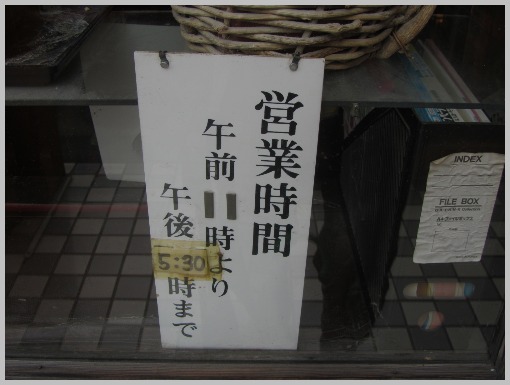 営業時間
午前11時より
午後5:30時まで
INDEX
FILE BOX